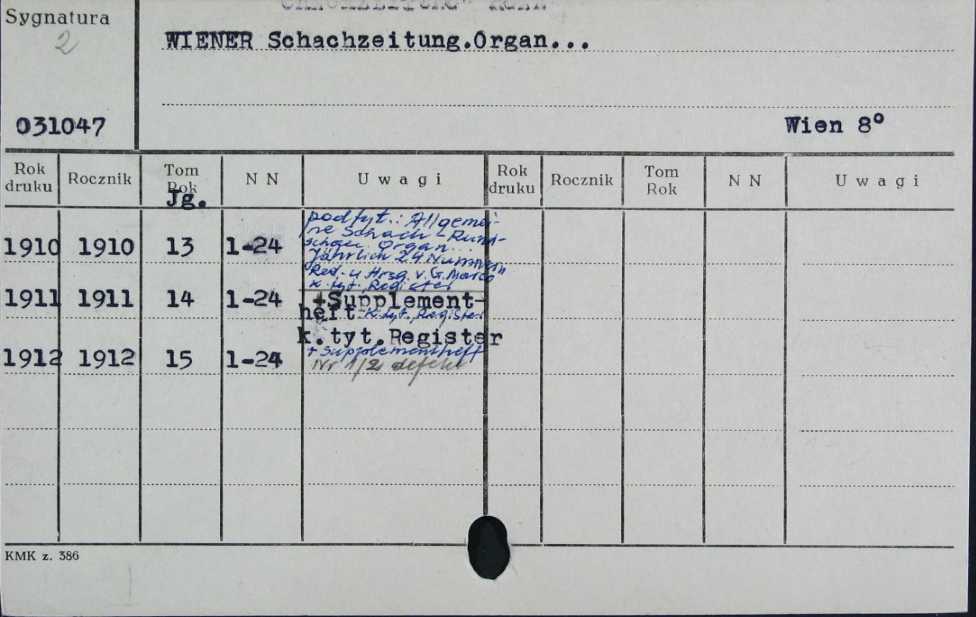 Sygnatura
2
WIENER Schachzeitung.Organ...
031047
Wien 8°
Rok druku Rocznik Tom Rok N N Uwagi Rok druku Rocznik Tom Rok N N Uwagi
Jg.
podtyt.: Allgemei-
ne Schach-Rund-
schau. Organ...
Jährlich 24 Nummern
Red. u Hrsg. v. G. Marco
k. tyt. Register
1910 1910 13 1-24
1911 1911 14 1-24 +Supplement-
heft - k. tyt. Register
k.tyt.Register
1912 1912 15 1-24 + Supplementheft
Nr 1/2 defekt
KMK z. 386